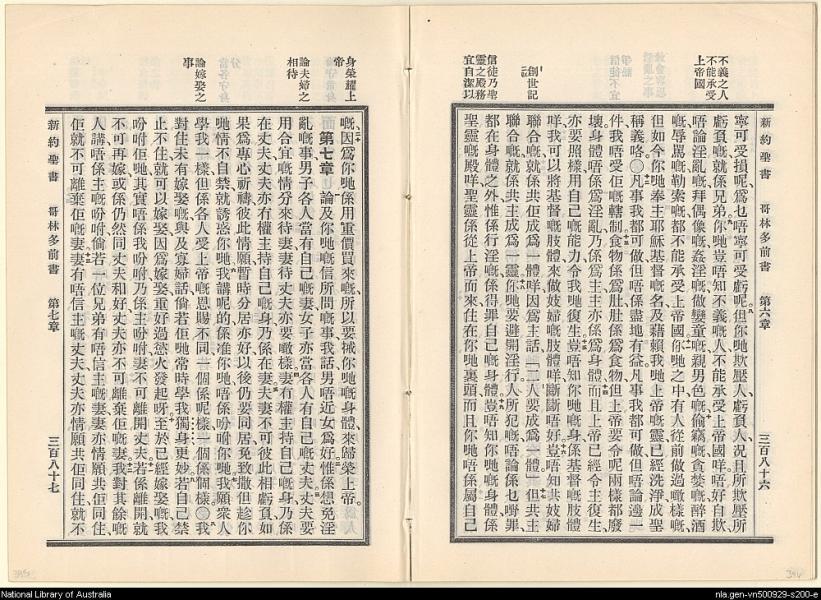 新約聖書 哥林多前書 第六章 三百八十六
不義之人
不能承受
上帝國
信徒乃聖
靈之殿務
宜自潔以
創世記
寧可受損呢、爲乜唔寧可受虧呢、但你哋欺壓人、虧負人、況且所欺壓所
虧負嘅、就係兄弟、你哋豈唔知不義嘅人、不能承受上帝國咩、唔好自欺、
唔論淫亂嘅、拜偶像嘅、姦淫嘅、做孌童嘅、親男色嘅、偷竊嘅、貪婪嘅、醉酒
嘅、辱罵嘅、勒索嘅、都不能承受上帝國、你哋之中有人從前做過噉樣嘅、
但如今你哋奉主耶穌基督嘅名、及藉賴我哋上帝嘅靈、已經洗淨成聖
稱義咯、〇凡事我都可做、但唔係盡地有益、凡事我都可做、但唔論邊一
件、我唔受佢嘅轄制、食物係爲肚、肚係爲食物、但上帝要令呢兩樣都廢
壞、身體唔係爲淫亂、乃係爲主、主亦係爲身體、而且上帝已經令主復生、
亦要照樣用自己嘅能力、令我哋復生、豈唔知你哋嘅身、係基督嘅肢體
咩、我可以將基督嘅肢體、來做妓婦嘅肢體咩、斷斷唔好、豈唔知共妓婦
聯合嘅、就係共佢成爲一體咩、因爲主話、二人要成爲一體、但共主
聯合嘅、就係共主成爲一靈、你哋要避開淫行、人所犯嘅、唔論係乜嘢罪、
都在身體之外、惟係行淫嘅、係得罪自己嘅身體、豈唔知你哋嘅身體、係
聖靈嘅殿咩、聖靈係從上帝而來、住在你哋裏頭、而且你哋唔係屬自己
身榮耀上
帝
論夫婦之
相待
論嫁娶之
事
嘅、因爲你哋係用重價買來嘅、所以要拯你哋嘅身體、來歸榮上帝、
第七章 論及你哋嘅信所問嘅事、我話男唔近女爲好、惟係想免淫
亂嘅事、男子各人當有自己嘅妻、女子亦當各人有自己嘅丈夫、丈夫要
用合宜嘅情分來待妻、妻待丈夫、亦要噉樣、妻有權主持自己嘅身、乃係
在丈夫、丈夫亦有權主持自己嘅身、乃係在妻、夫妻不可彼此相虧負、如
果爲專心祈禱、彼此情願暫時分居亦好、以後仍要同居、免致撒但趁你
哋情不自禁、就誘惑你哋、我講呢的、係准你哋、唔係吩咐你哋、我願衆人
學我一樣、但係各人受上帝嘅恩賜不同、一個係呢樣、一個係個樣、〇我
對住未有嫁娶嘅、與及寡婦話、倘若佢哋常時學我獨身更妙、若自己禁
止不住、就可以嫁娶、因爲嫁娶重好過慾火發起呀、至於已經嫁娶嘅、我
吩咐佢哋、其實唔係我吩咐、乃係主吩咐、妻不可離開丈夫、若係離開、就
不可再嫁、或係仍然同丈夫和好、丈夫亦不可離棄佢嘅妻、我對其餘嘅
人講、唔係主嘅吩咐、倘若一位兄弟、有唔信主嘅妻、妻亦情願共佢同住、
佢就不可離棄佢嘅妻、妻有唔信主嘅丈夫、丈夫亦情願共佢同住、就不
新約聖書 哥林多前書 第七章 三百八十七
National Library of Australia
nla.gen-vn500929-s200-e